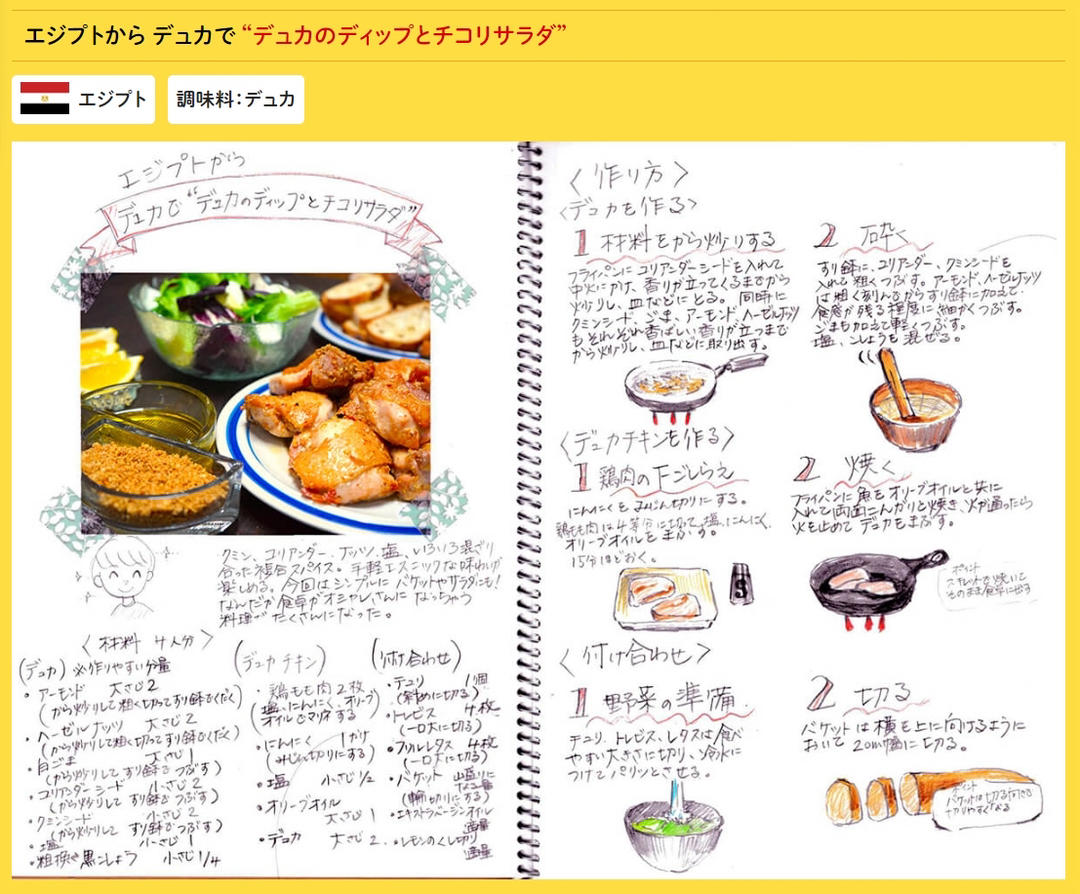 エジプトから デュカで “デュカのディップとチコリサラダ”
エジプト
調味料：デュカ
エジプトから
デュカで “デュカのディップとチコリサラダ”
クミン、コリアンダー、ナッツ、塩、いろいろ混ざり
合った複合スパイス。手軽エスニックな味わいが
楽しめる。今回はシンプルにバケットやサラダにも!
なんだか食卓がオシャレさんになっちゃう
料理でたくさんになった。
〈材料 4人分〉
(デュカ) ※作りやすい分量
・アーモンド 大さじ2
(から炒りして粗く切ってすり鉢でくだく)
・ヘーゼルナッツ 大さじ2
(から炒りして粗く切ってすり鉢でくだく)
・白ごま 大さじ1
(から炒りしてすり鉢でつぶす)
・コリアンダーシード 小さじ2
(から炒りして すり鉢でつぶす)
・クミンシード 小さじ2
(から炒りして すり鉢でつぶす)
・塩 小さじ1
・粗挽き黒こしょう 小さじ1/4
(デュカチキン)
・鶏もも肉2枚
(塩、にんにく、オリーブ
オイルでマリネする)
・にんにく 1かけ
(みじん切りにする)
・塩 小さじ1/2
・オリーブオイル
大さじ1
・デュカ 大さじ2
(付け合わせ)
・チコリ 1個
(斜めに切る)
・トレビス 4枚
(一口大に切る)
・フリルレタス 4枚
(一口大に切る)
・バケット
(輪切りにする)
・エキストラバージンオイル
適量
・レモンのくし切り
適量
〈作り方〉
〈デュカを作る〉
1 材料をから炒りする
フライパンにコリアンダーシードを入れて
中火にかけ、香りが立ってくるまでから
炒りし、皿などにとる。同時に
クミンシード、ごま、アーモンド、ヘーゼルナッツ
もそれぞれ香ばしい香りが立つまで
から炒りし、皿などに取り出す。
2 砕く
すり鉢に、コリアンダー、クミンシードを
入れて粗くつぶす。アーモンド、ヘーゼルナッツ
は粗く刻んでからすり鉢に加えて、
食感が残る程度に細かくつぶす。
ごまも加えて軽くつぶす。
塩、こしょうを混ぜる。
〈デュカチキンを作る〉
1 鶏肉の下ごしらえ
にんにくをみじん切りにする。
鶏もも肉は4等分に切って、塩、にんにく、
オリーブオイルをまぶす。
15分ほどおく。
2 焼く
フライパンに魚をオリーブオイルと共に
入れて両面こんがりと焼き、火が通ったら
火を止めてデュカをまぶす。
ポイント
スキレットで焼いて
そのまま食卓に出す
〈付け合わせ〉
1 野菜の準備
チコリ、トレビス、レタスは食べ
やすい大きさに切り、冷水に
つけてパリッとさせる。
2 切る
バケットは横を上に向けるように
おいて 20mm幅に切る。
ポイント
バケットは
切りやすくなる